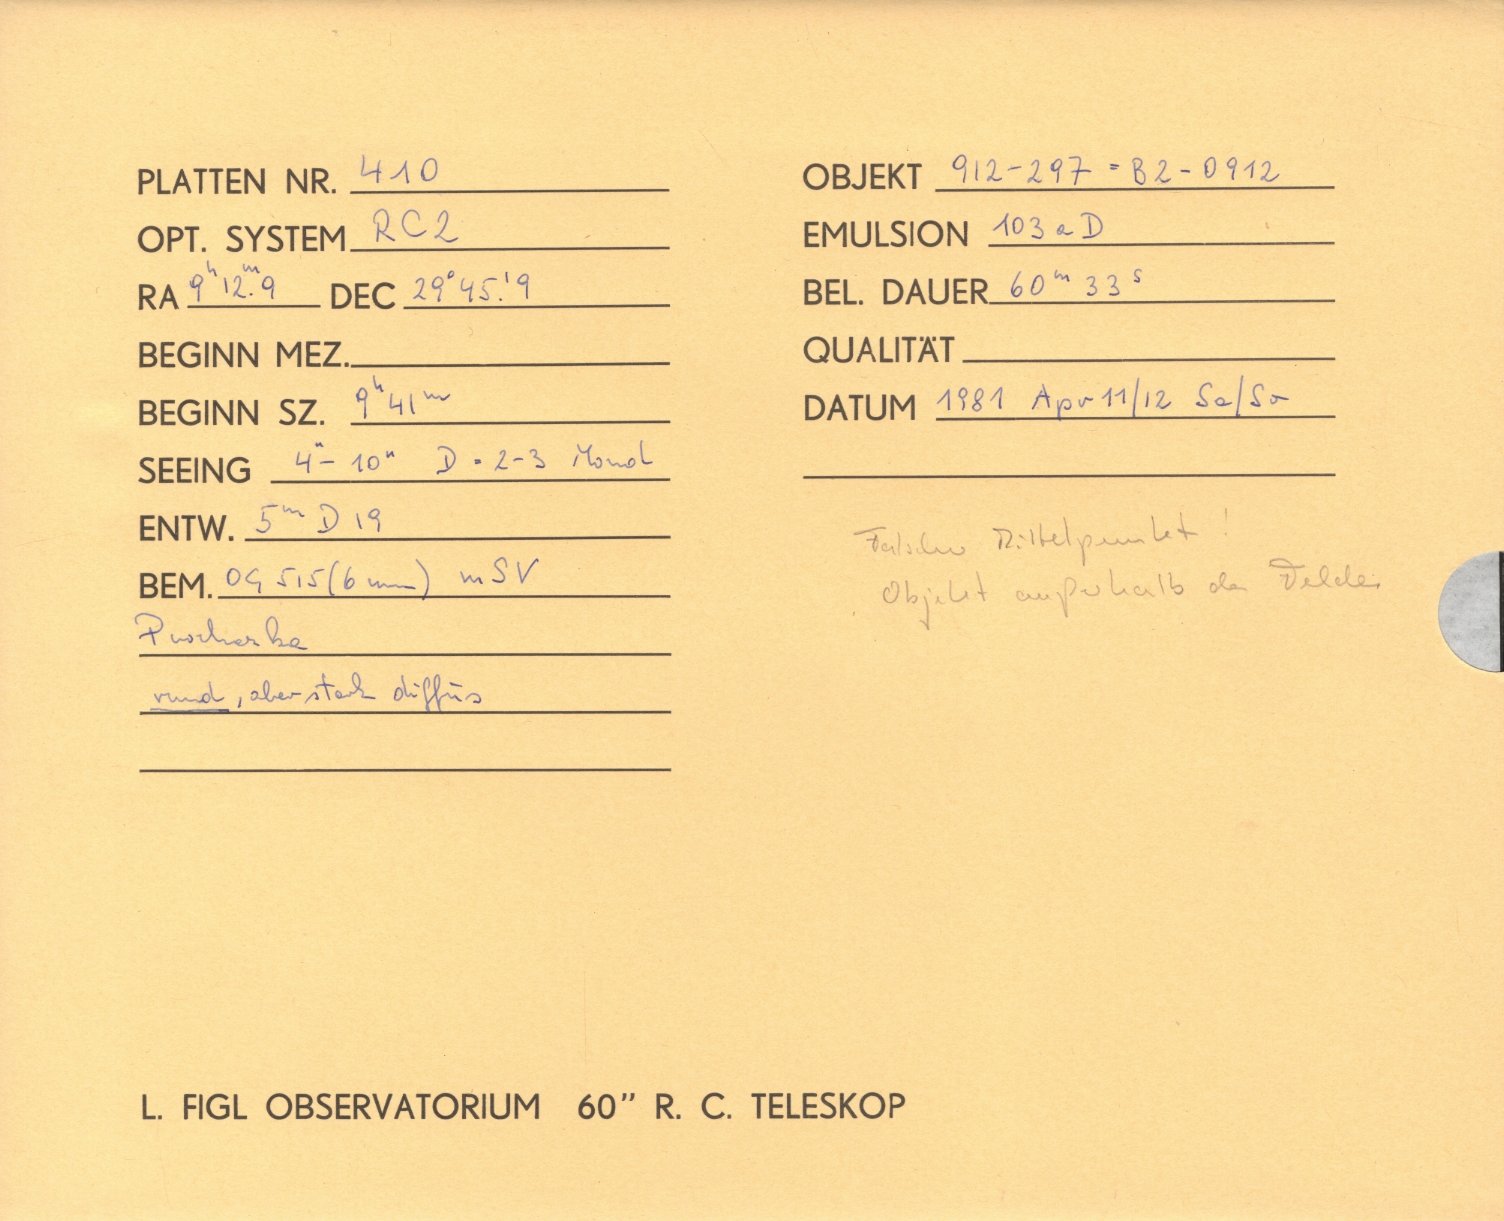 PLATTEN NR. 410
OPT. SYSTEM RC2
RA 9ʰ12ᵐ.9 DEC 29°45.'9
BEGINN MEZ.
BEGINN SZ. 9ʰ41ᵐ
SEEING 4"-10" D=2-3 Mond
ENTW. 5ᵐ D19
BEM. OG 515 (6mm) mSV
Puscharka
rund, aber stark diffus
OBJEKT 912-297 = B2-0912
EMULSION 103aD
BEL. DAUER 60ᵐ 33ˢ
QUALITÄT
DATUM 1981 Apr 11/12 Sa/So
Falscher Mittelpunkt!
Objekt außerhalb des Feldes
L. FIGL OBSERVATORIUM 60" R. C. TELESKOP